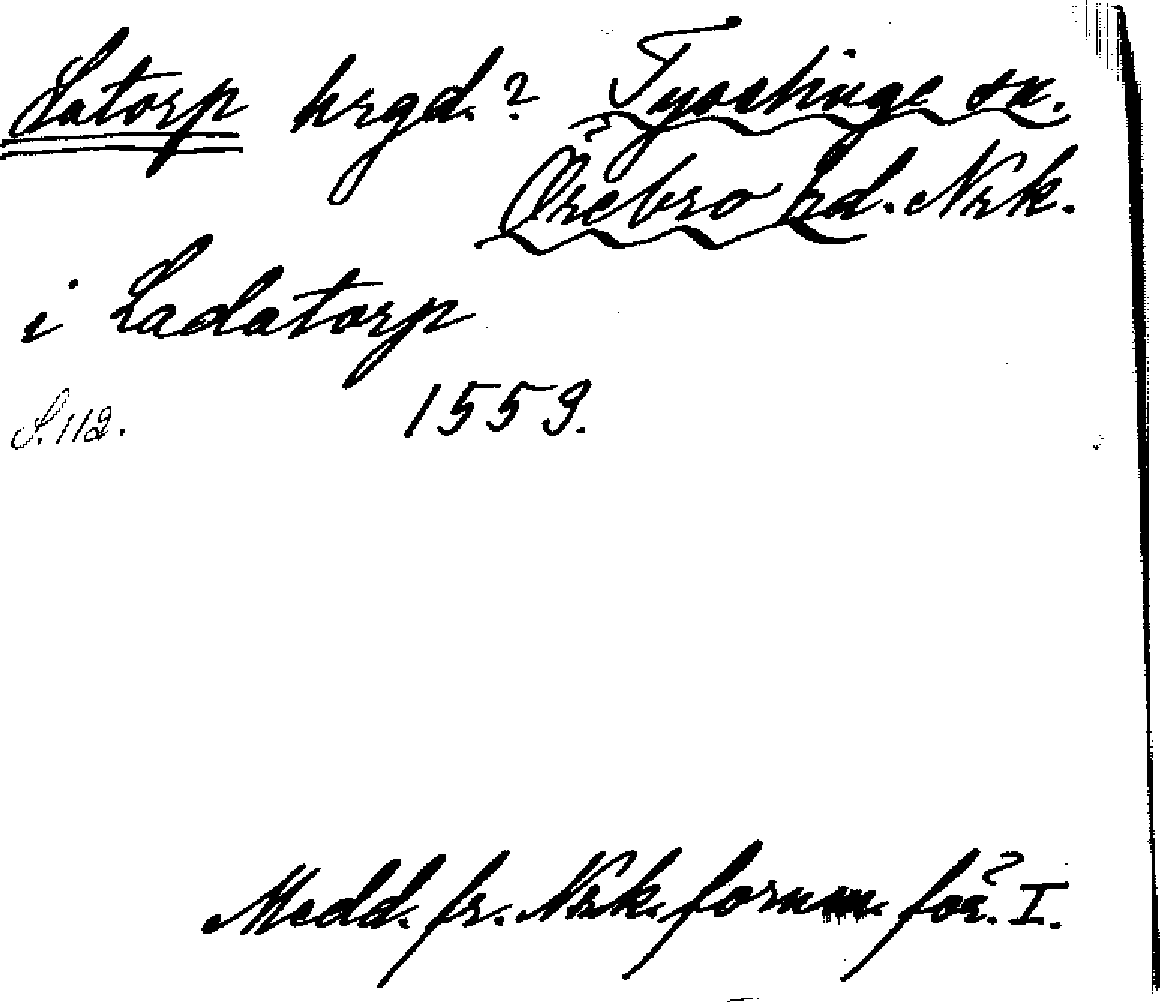 Latorp hrgd.? Tysslinge sn.
Örebro hd. Nrk.
i Ladatorp
1559.
S. 112.
Medd. fr. Nrk. fornm. för. I.